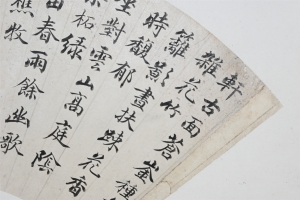 軒
雜古面蒼崟種
籬花竹
時馥影畫扶疎花香
坐對郁
雲山高庭陰
柘綠
田春雨餘幽歌
樵牧